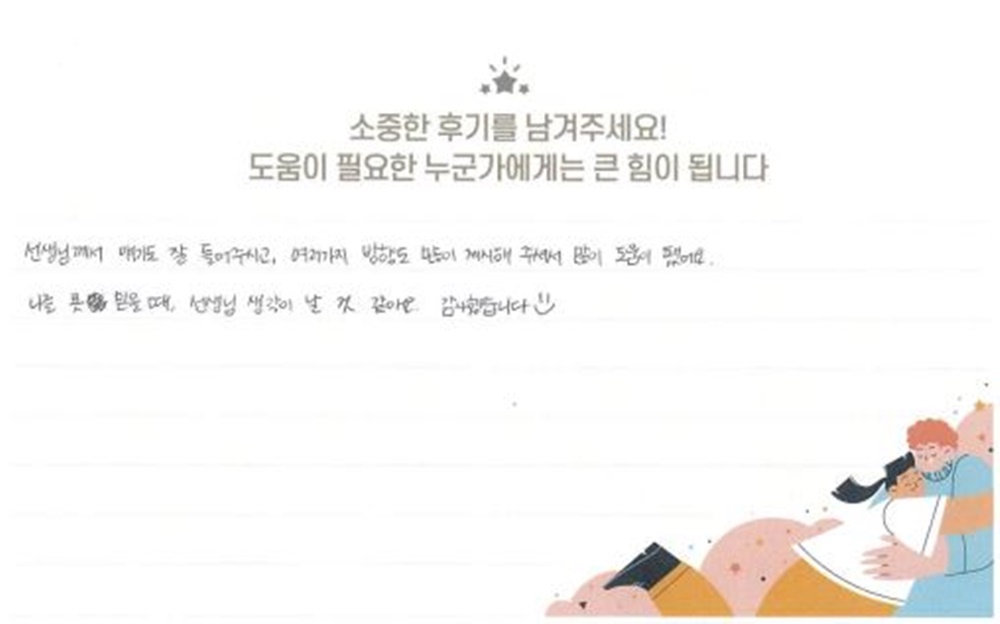 소중한 후기를 남겨주세요!
도움이 필요한 누군가에게는 큰 힘이 됩니다
선생님께서 얘기도 잘 들어주시고, 여러가지 방향도 많이 제시해 주셔서 많이 도움이 됐어요.
나를 못 믿을 때, 선생님 생각이 날 것 같아요. 감사했습니다